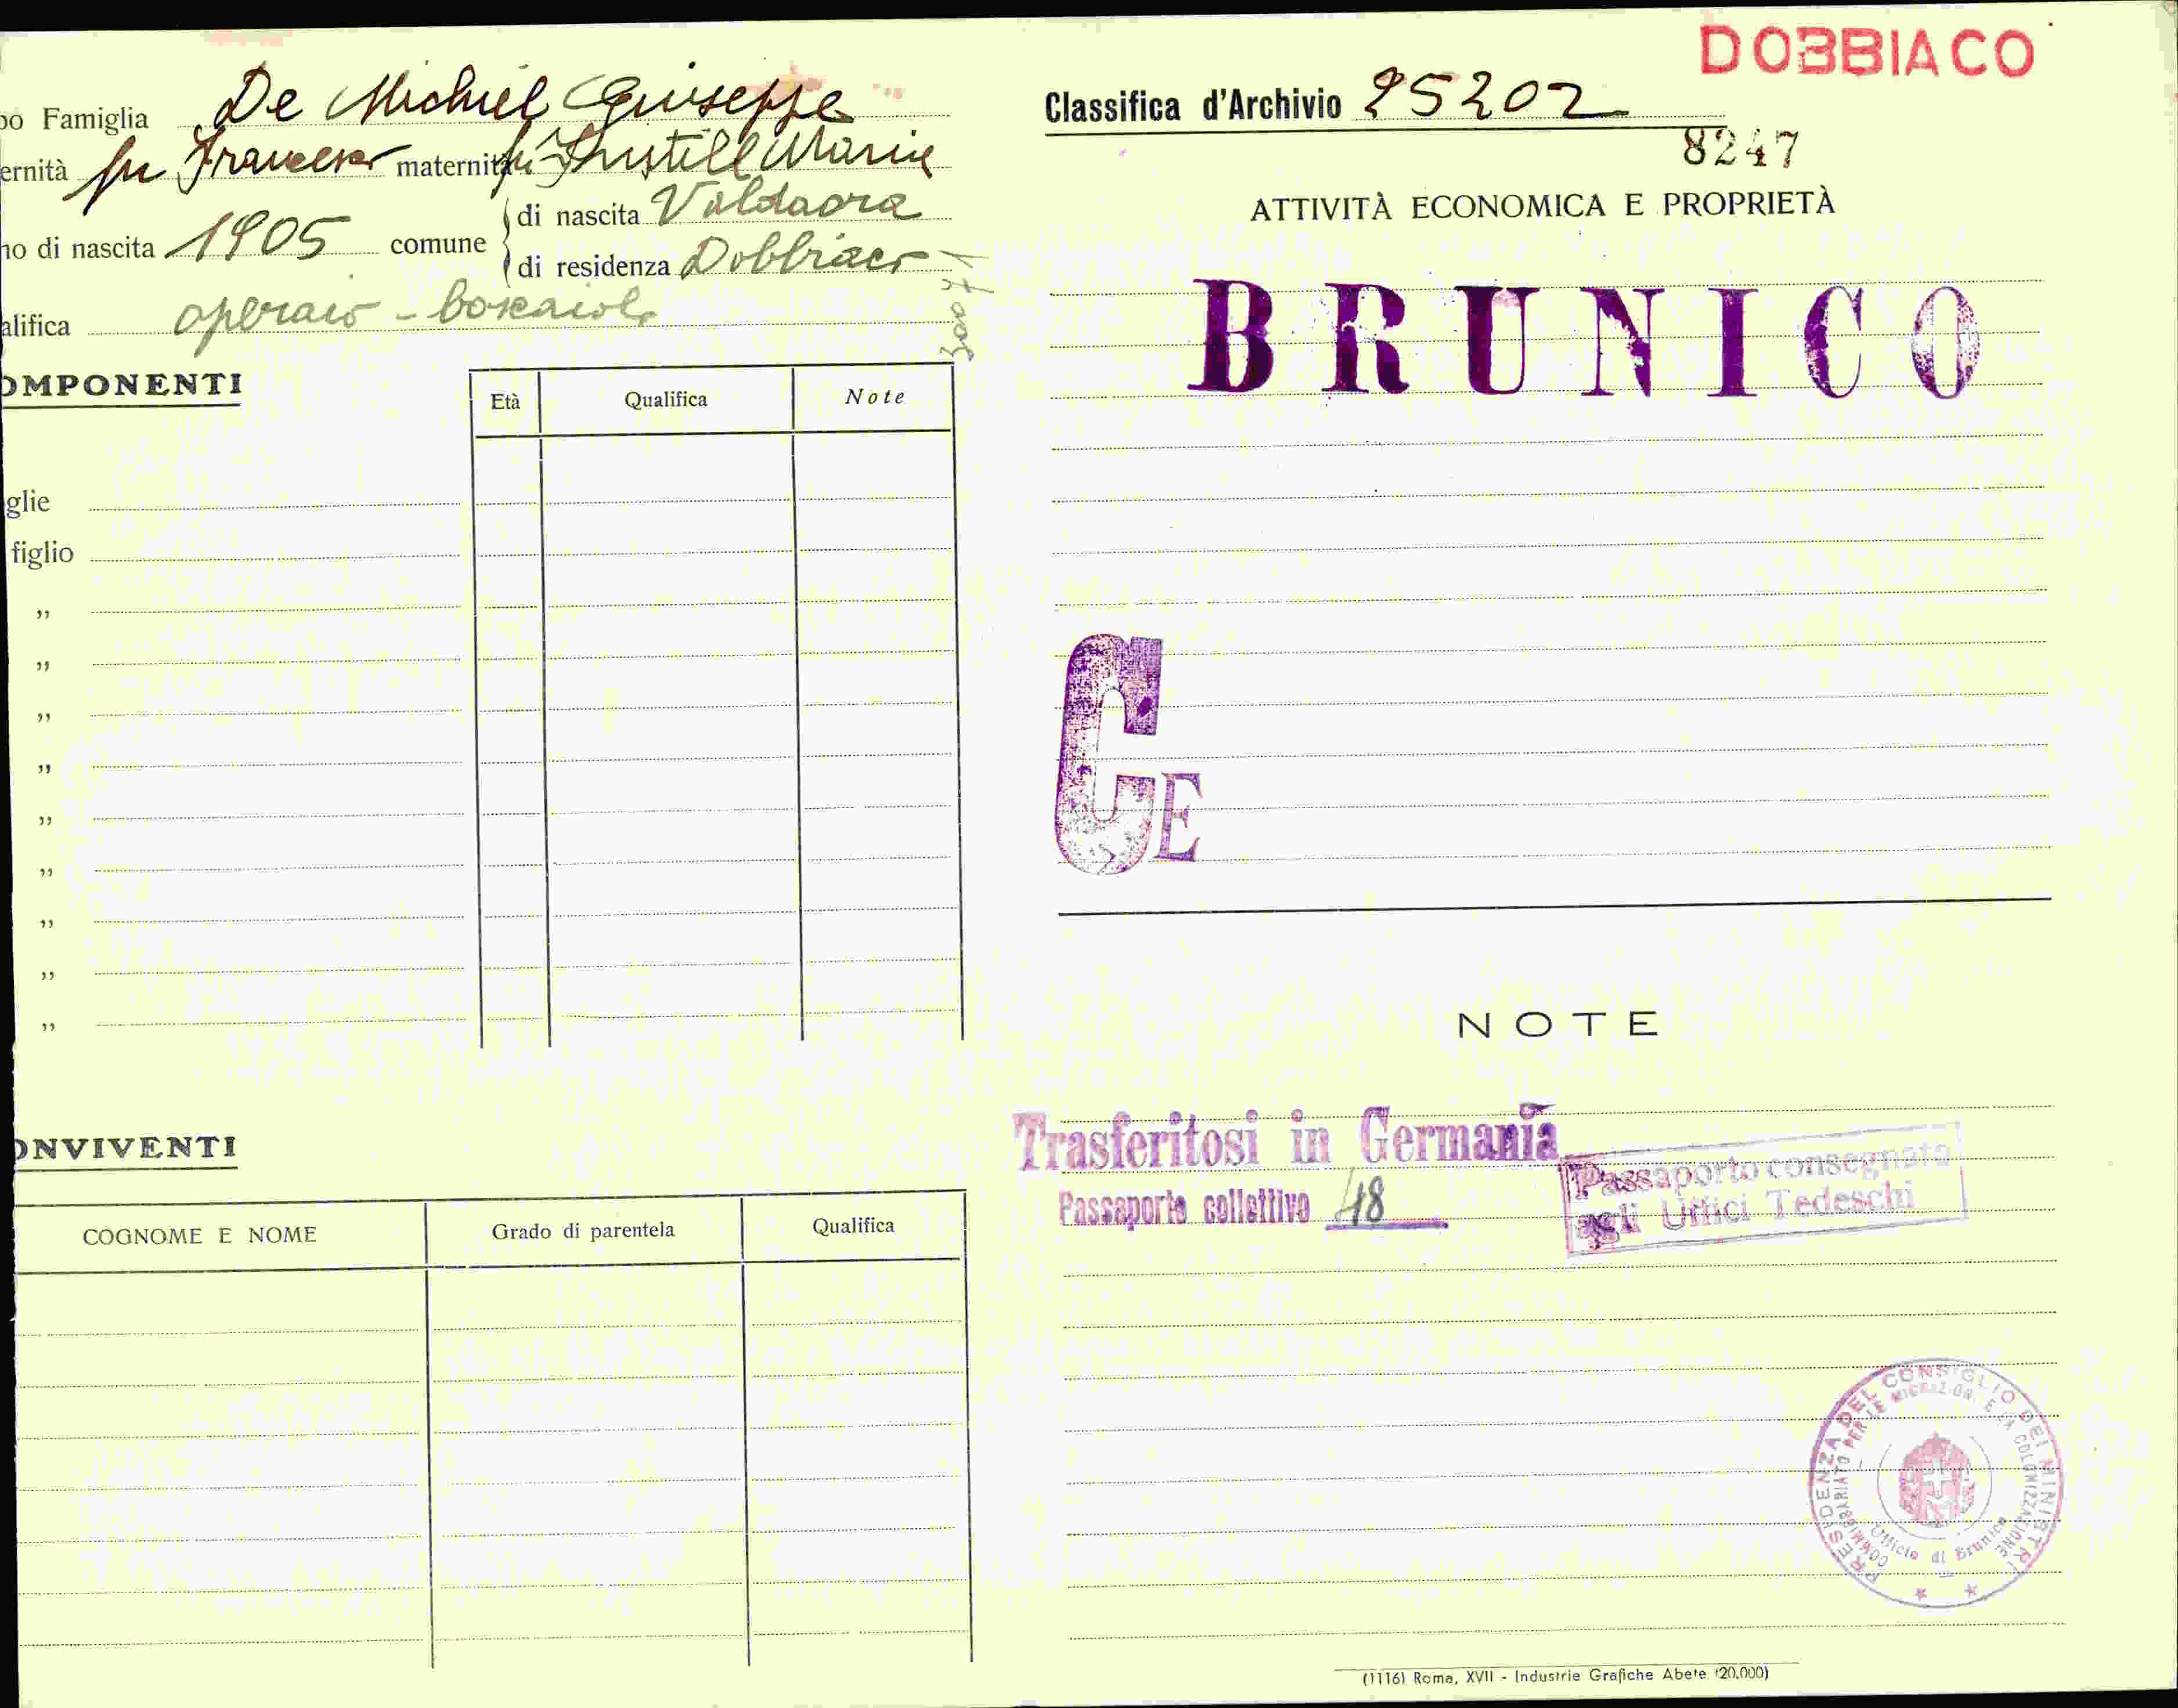 DOBBIACO
po Famiglia De Michiel Giuseppe
ernità fu Francesco maternità fu Maria
no di nascita 1905 comune di nascita Valdaora
di residenza Dobbiaco
alifica operaio - boscaiolo
OMPONENTI
Età Qualifica Note
glie
figlio
"
"
"
"
"
"
"
"
"
ONVIVENTI
COGNOME E NOME Grado di parentela Qualifica
Classifica d'Archivio 25202
8247
ATTIVITÀ ECONOMICA E PROPRIETÀ
BRUNICO
CE
NOTE
Trasferitosi in Germania
Passaporto collettivo 48
Passaporto consegnato
agli Uffici Tedeschi
PRESIDENZA DEL CONSIGLIO DEI MINISTRI
COMMISSARIATO PER LE MIGRAZION. E LA COLONIZZAZIONE
Ufficio di Brunico
(1116) Roma, XVII - Industrie Grafiche Abete (20.000)